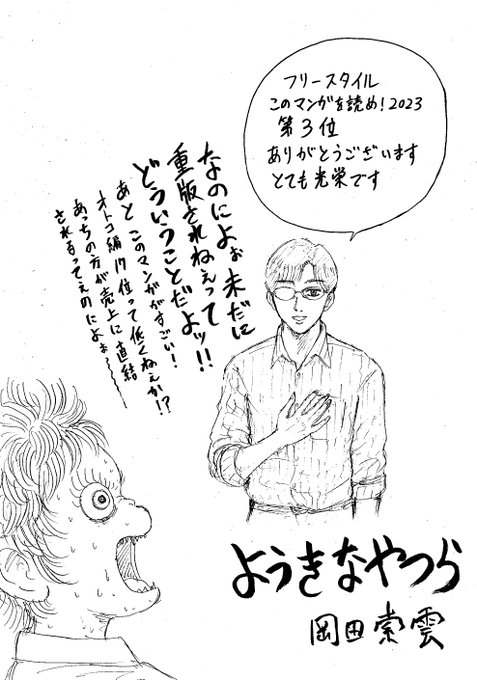 フリースタイル
このマンガを読め!2023
第3位
ありがとうございます
とても光栄です
なのによぉ未だに
重版されねぇって
どういうことだよッ!!
あと このマンガがすごい!
オトコ編17位って低くねぇか!?
あっちの方が売上に直結
されるってぇのによぉ〜〜〜
ようきなやつら
岡田索雲